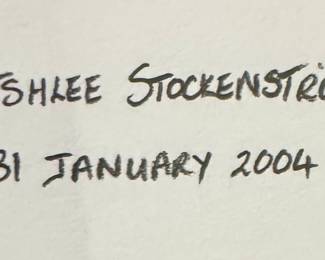 SHLEE STOCKENSTR
31 JANUARY 2004